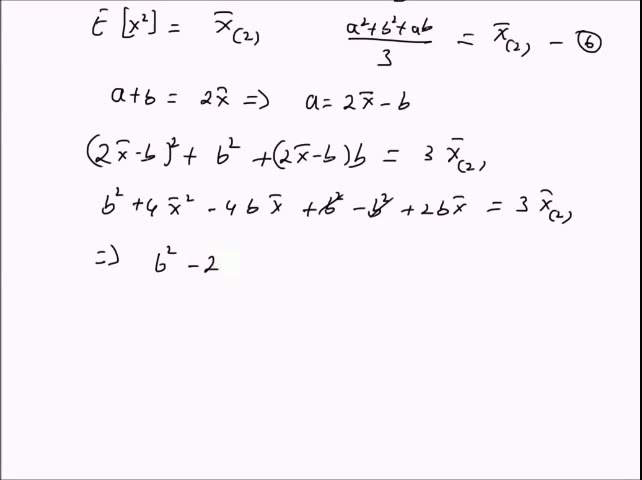 E[x²] = x̄₍₂₎   (a²+b²+ab)/3 = x̄₍₂₎ - ⑥
a+b = 2x̄ => a = 2x̄ - b
(2x̄-b)² + b² + (2x̄-b)b = 3 x̄₍₂₎
b² + 4x̄² - 4bx̄ + b² - b² + 2bx̄ = 3 x̄₍₂₎
=> b² - 2